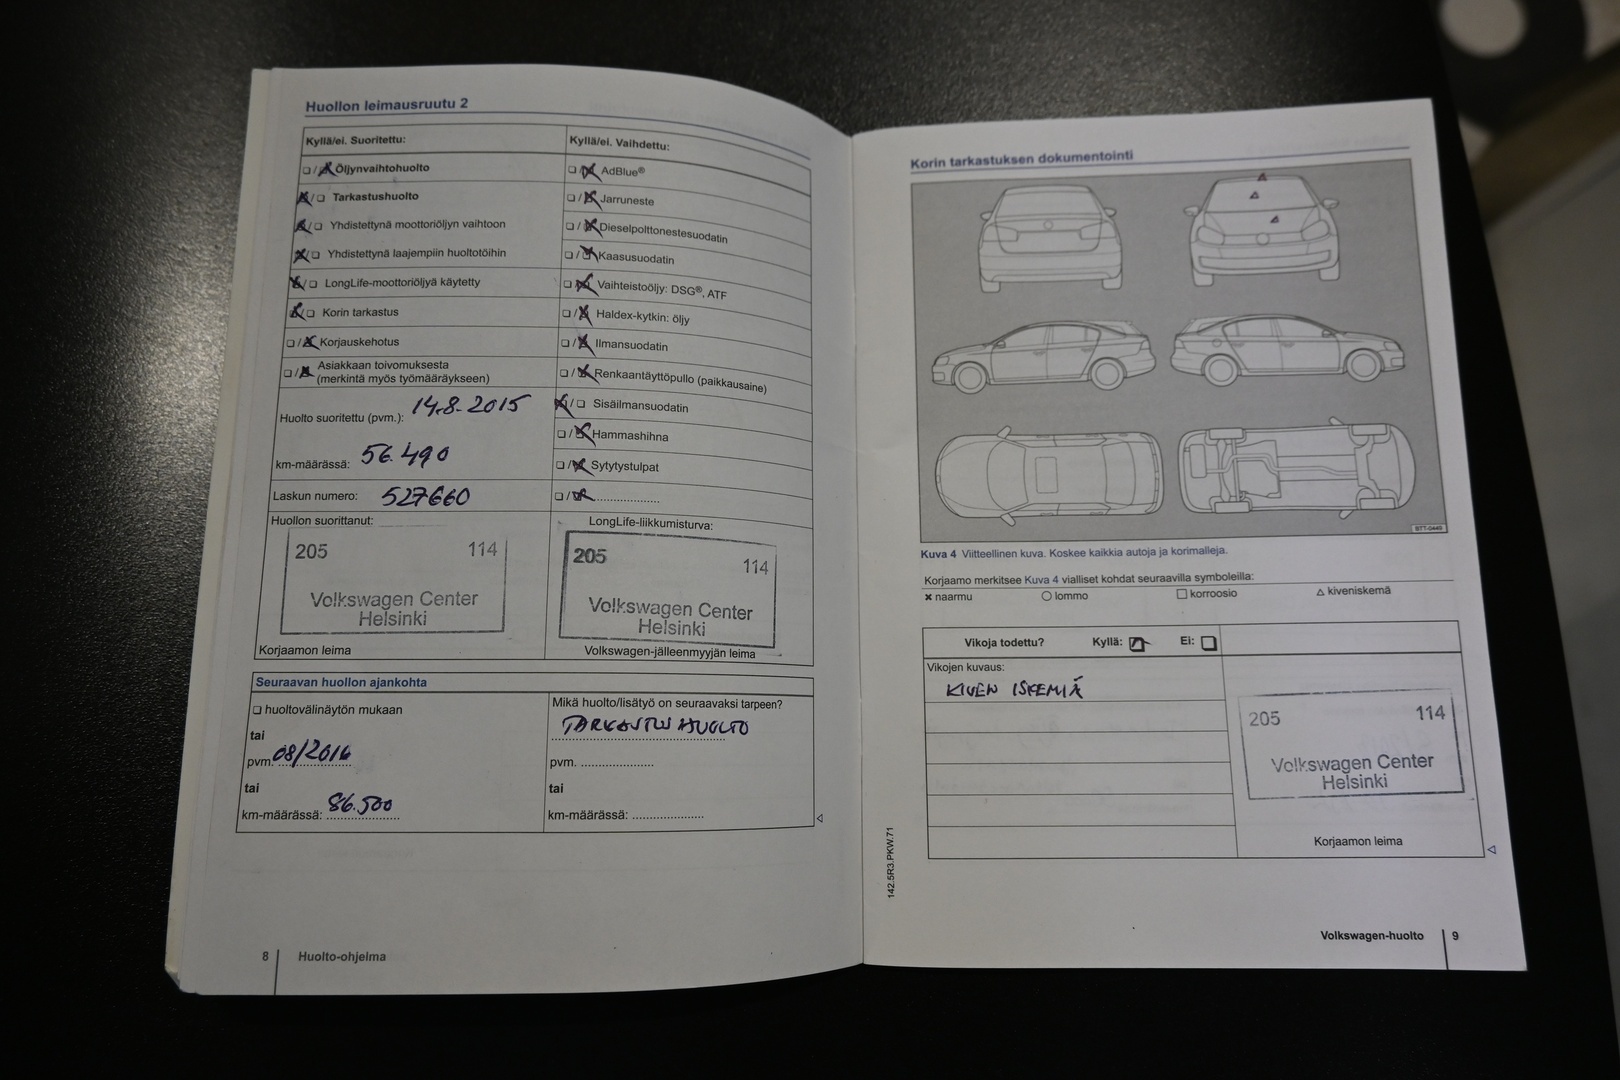 Huollon leimausruutu 2
Kyllä/ei. Suoritettu:
☐/☒ Öljynvaihtohuolto
☒/☐ Tarkastushuolto
☒/☐ Yhdistettynä moottoriöljyn vaihtoon
☒/☐ Yhdistettynä laajempiin huoltotöihin
☒/☐ LongLife-moottoriöljyä käytetty
☒/☐ Korin tarkastus
☐/☒ Korjauskehotus
☐/☒ Asiakkaan toivomuksesta
(merkintä myös työmääräykseen)
Huolto suoritettu (pvm.): 14.8.2015
km-määrässä: 56.490
Laskun numero: 527660
Kyllä/ei. Vaihdettu:
☐/☒ AdBlue®
☐/☒ Jarruneste
☐/☒ Dieselpolttonestesuodatin
☐/☒ Kaasusuodatin
☐/☒ Vaihteistoöljy: DSG®, ATF
☐/☒ Haldex-kytkin: öljy
☐/☒ Ilmansuodatin
☐/☒ Renkaantäyttöpullo (paikkausaine)
☒/☐ Sisäilmansuodatin
☐/☒ Hammashihna
☐/☒ Sytytystulpat
☐/☒ ....................
Huollon suorittanut:
205 114
Volkswagen Center
Helsinki
Korjaamon leima
LongLife-liikkumisturva:
205 114
Volkswagen Center
Helsinki
Volkswagen-jälleenmyyjän leima
Seuraavan huollon ajankohta
☐ huoltovälinäytön mukaan
tai
pvm. 08/2016
tai
km-määrässä: 86.500
Mikä huolto/lisätyö on seuraavaksi tarpeen?
TARKASTUSHUOLTO
pvm. ....................
tai
km-määrässä: ....................
8 Huolto-ohjelma
Korin tarkastuksen dokumentointi
BTT-0449
Kuva 4 Viitteellinen kuva. Koskee kaikkia autoja ja korimalleja.
Korjaamo merkitsee Kuva 4 vialliset kohdat seuraavilla symboleilla:
✖ naarmu ○ lommo ☐ korroosio △ kiveniskemä
Vikoja todettu? Kyllä: ☒ Ei: ☐
Vikojen kuvaus:
KIVEN ISKEMIÄ
205 114
Volkswagen Center
Helsinki
Korjaamon leima
142.5R3.PKW.71
Volkswagen-huolto 9